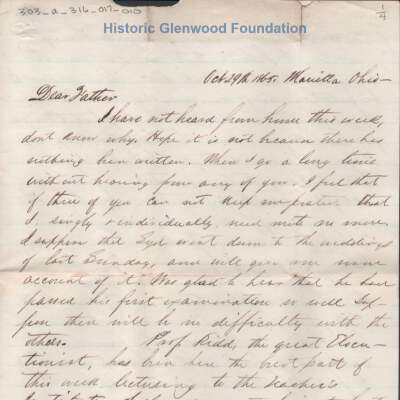 303_a_316_017_010
1/4
Historic Glenwood Foundation
Oct 29th 1865. Marietta Ohio—
Dear Father
I have not heard from home this week,
don't know why. Hope it is not because there has
nothing been written. When I go a long time
without hearing from any of you, I feel that
if three of you can not keep me posted that
I, singly & individually, need write no more.
I suppose that Syd went down to the weddings
of last Sunday, and will give me some
account of it. Was glad to hear that he have
passed his first examination so well. Sup-
pose there will be no difficulty with the
others. Prof Kidd, the great Elocu-
tionist, has been here the best part of
this week lecturing to the Teacher's